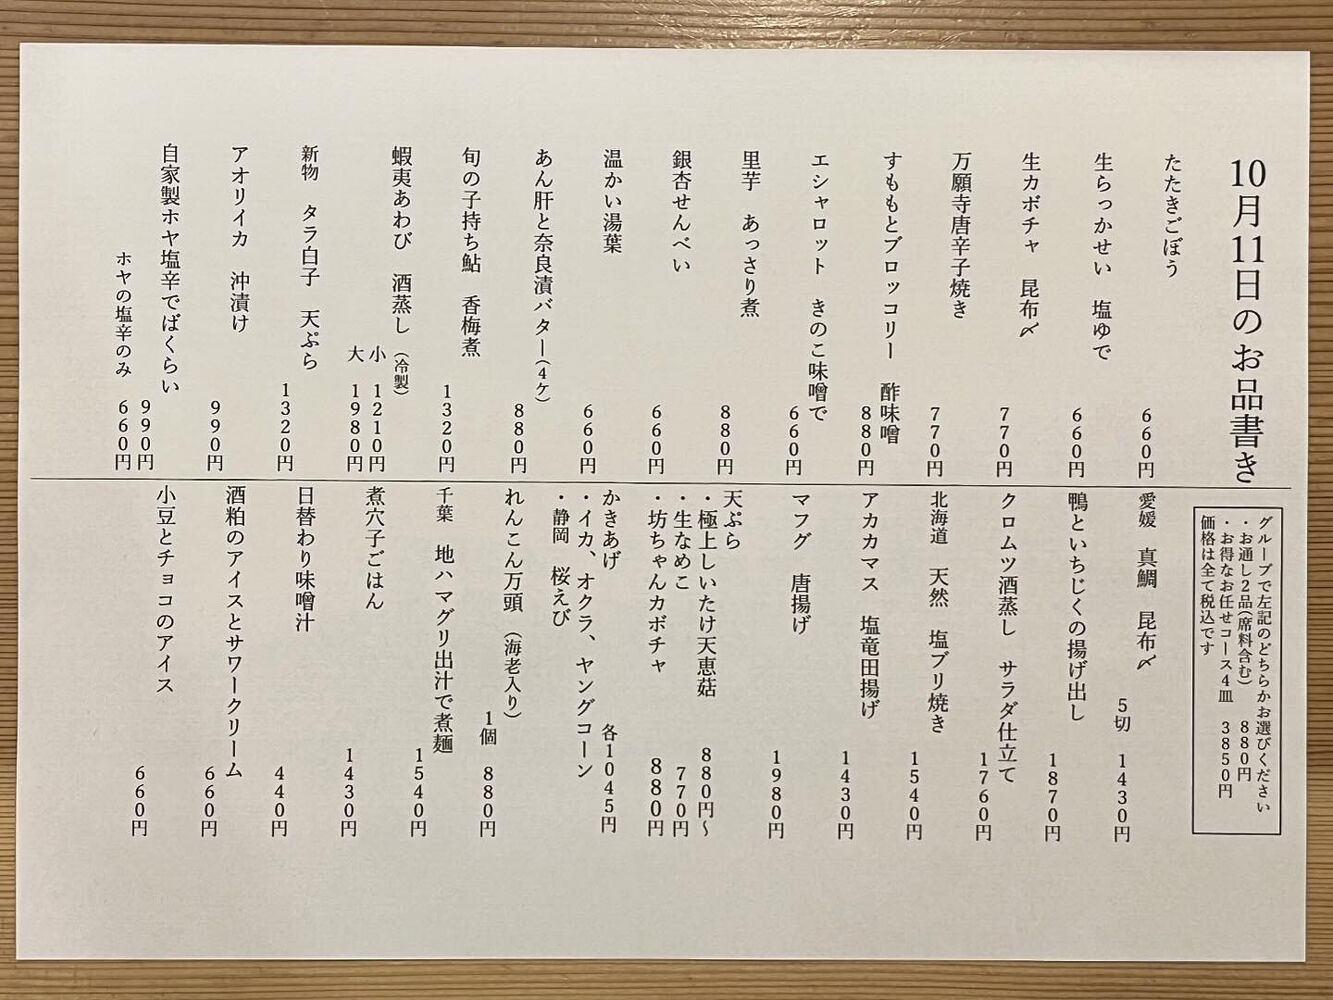 10月11日のお品書き
たたきごぼう
660円
生らっかせい 塩ゆで
660円
生カボチャ 昆布〆
770円
万願寺唐辛子焼き
770円
すももとブロッコリー 酢味噌
880円
エシャロット きのこ味噌で
660円
里芋 あっさり煮
880円
銀杏せんべい
660円
温かい湯葉
660円
あん肝と奈良漬バター(4ケ)
880円
旬の子持ち鮎 香梅煮
1320円
蝦夷あわび 酒蒸し(冷製)
小 1210円
大 1980円
新物 タラ白子 天ぷら
1320円
アオリイカ 沖漬け
990円
自家製ホヤ塩辛でばくらい
990円
ホヤの塩辛のみ 660円
グループで左記のどちらかお選びください
・お通し2品(席料含む) 880円
・お得なお任せコース4皿 3850円
価格は全て税込です
愛媛 真鯛 昆布〆
5切 1430円
鴨といちじくの揚げ出し
1870円
クロムツ酒蒸し サラダ仕立て
1760円
北海道 天然 塩ブリ焼き
1540円
アカカマス 塩竜田揚げ
1430円
マフグ 唐揚げ
1980円
天ぷら
・極上しいたけ天恵菇 880円～
・生なめこ 770円
・坊ちゃんカボチャ 880円
かきあげ 各1045円
・イカ、オクラ、ヤングコーン
・静岡 桜えび
れんこん万頭(海老入り)
1個 880円
千葉 地ハマグリ出汁で煮麺
1540円
煮穴子ごはん
1430円
日替わり味噌汁
440円
酒粕のアイスとサワークリーム
660円
小豆とチョコのアイス
660円